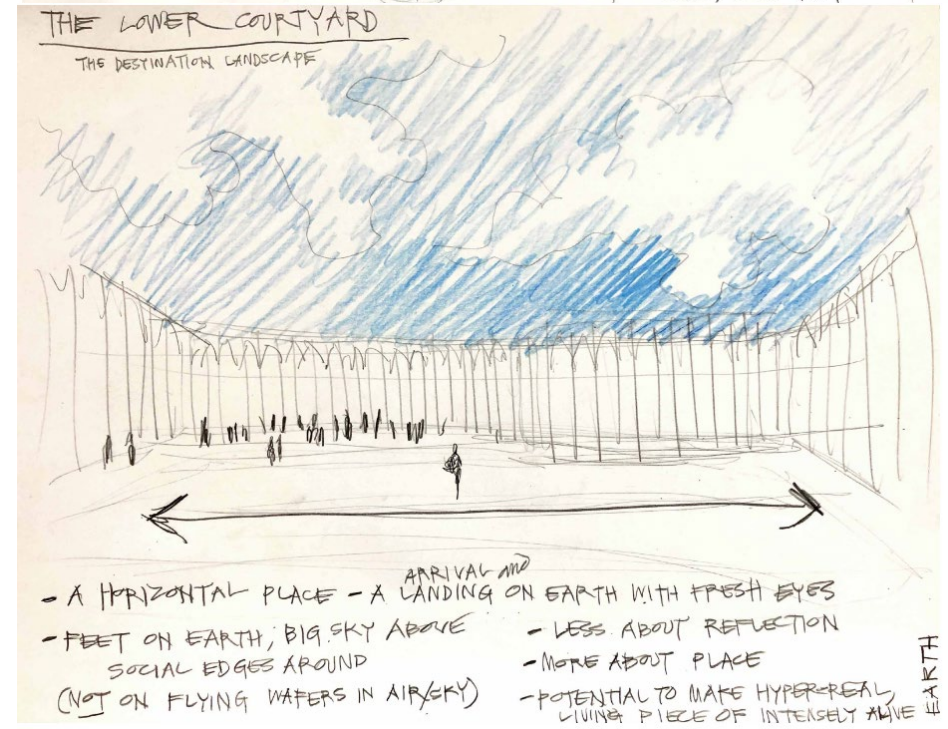 THE LOWER COURTYARD
THE DESTINATION LANDSCAPE
- A HORIZONTAL PLACE - A ARRIVAL and LANDING ON EARTH WITH FRESH EYES
- FEET ON EARTH, BIG SKY ABOVE
SOCIAL EDGES AROUND
(NOT ON FLYING WAFERS IN AIR/SKY)
- LESS ABOUT REFLECTION
- MORE ABOUT PLACE
- POTENTIAL TO MAKE HYPER-REAL,
LIVING PIECE OF INTENSELY ALIVE
EARTH